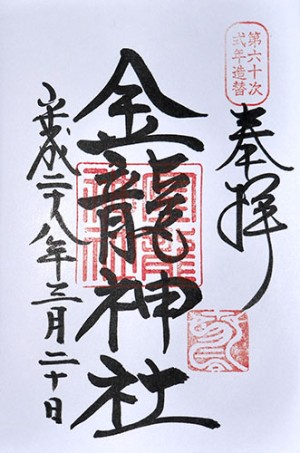 第六十次
式年造替
奉拝
金龍神社
平成二十八年三月二十日